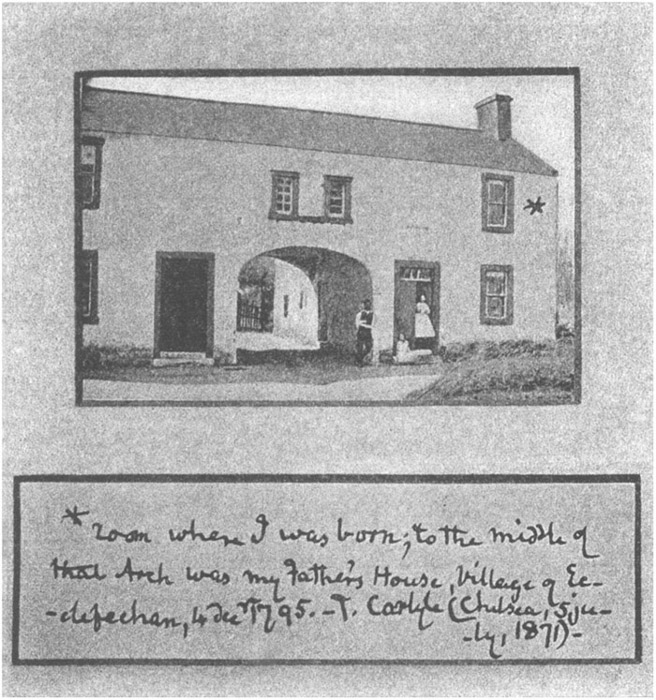 *
* room where I was born; to the middle of
that Arch was my Father's House, Village of Ec-
-clefechan, 4 Decr 1795. - T. Carlyle (Chelsea, 5 ju-
-ly, 1871) -